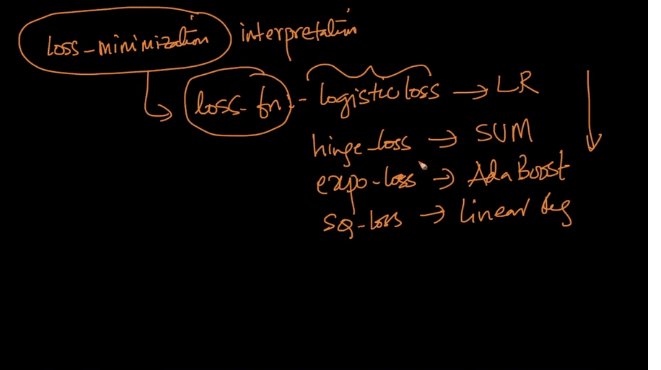 loss-minimization interpretation
loss-fn:- logistic loss → LR
hinge-loss → SVM
expo-loss → AdaBoost
sq-loss → linear reg